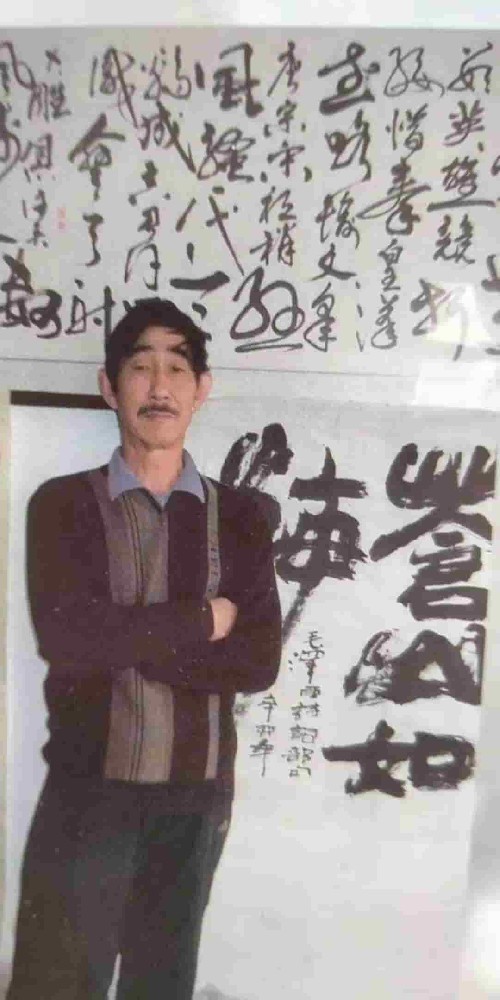 數英雄競折
腰惜秦皇漢
武略輸文采
唐宗宋祖稍遜
風騷一代
驕成吉思汗
識彎弓射
大雕俱往矣數
蒼山如
海
毛澤東詩詞節句
辛卯年